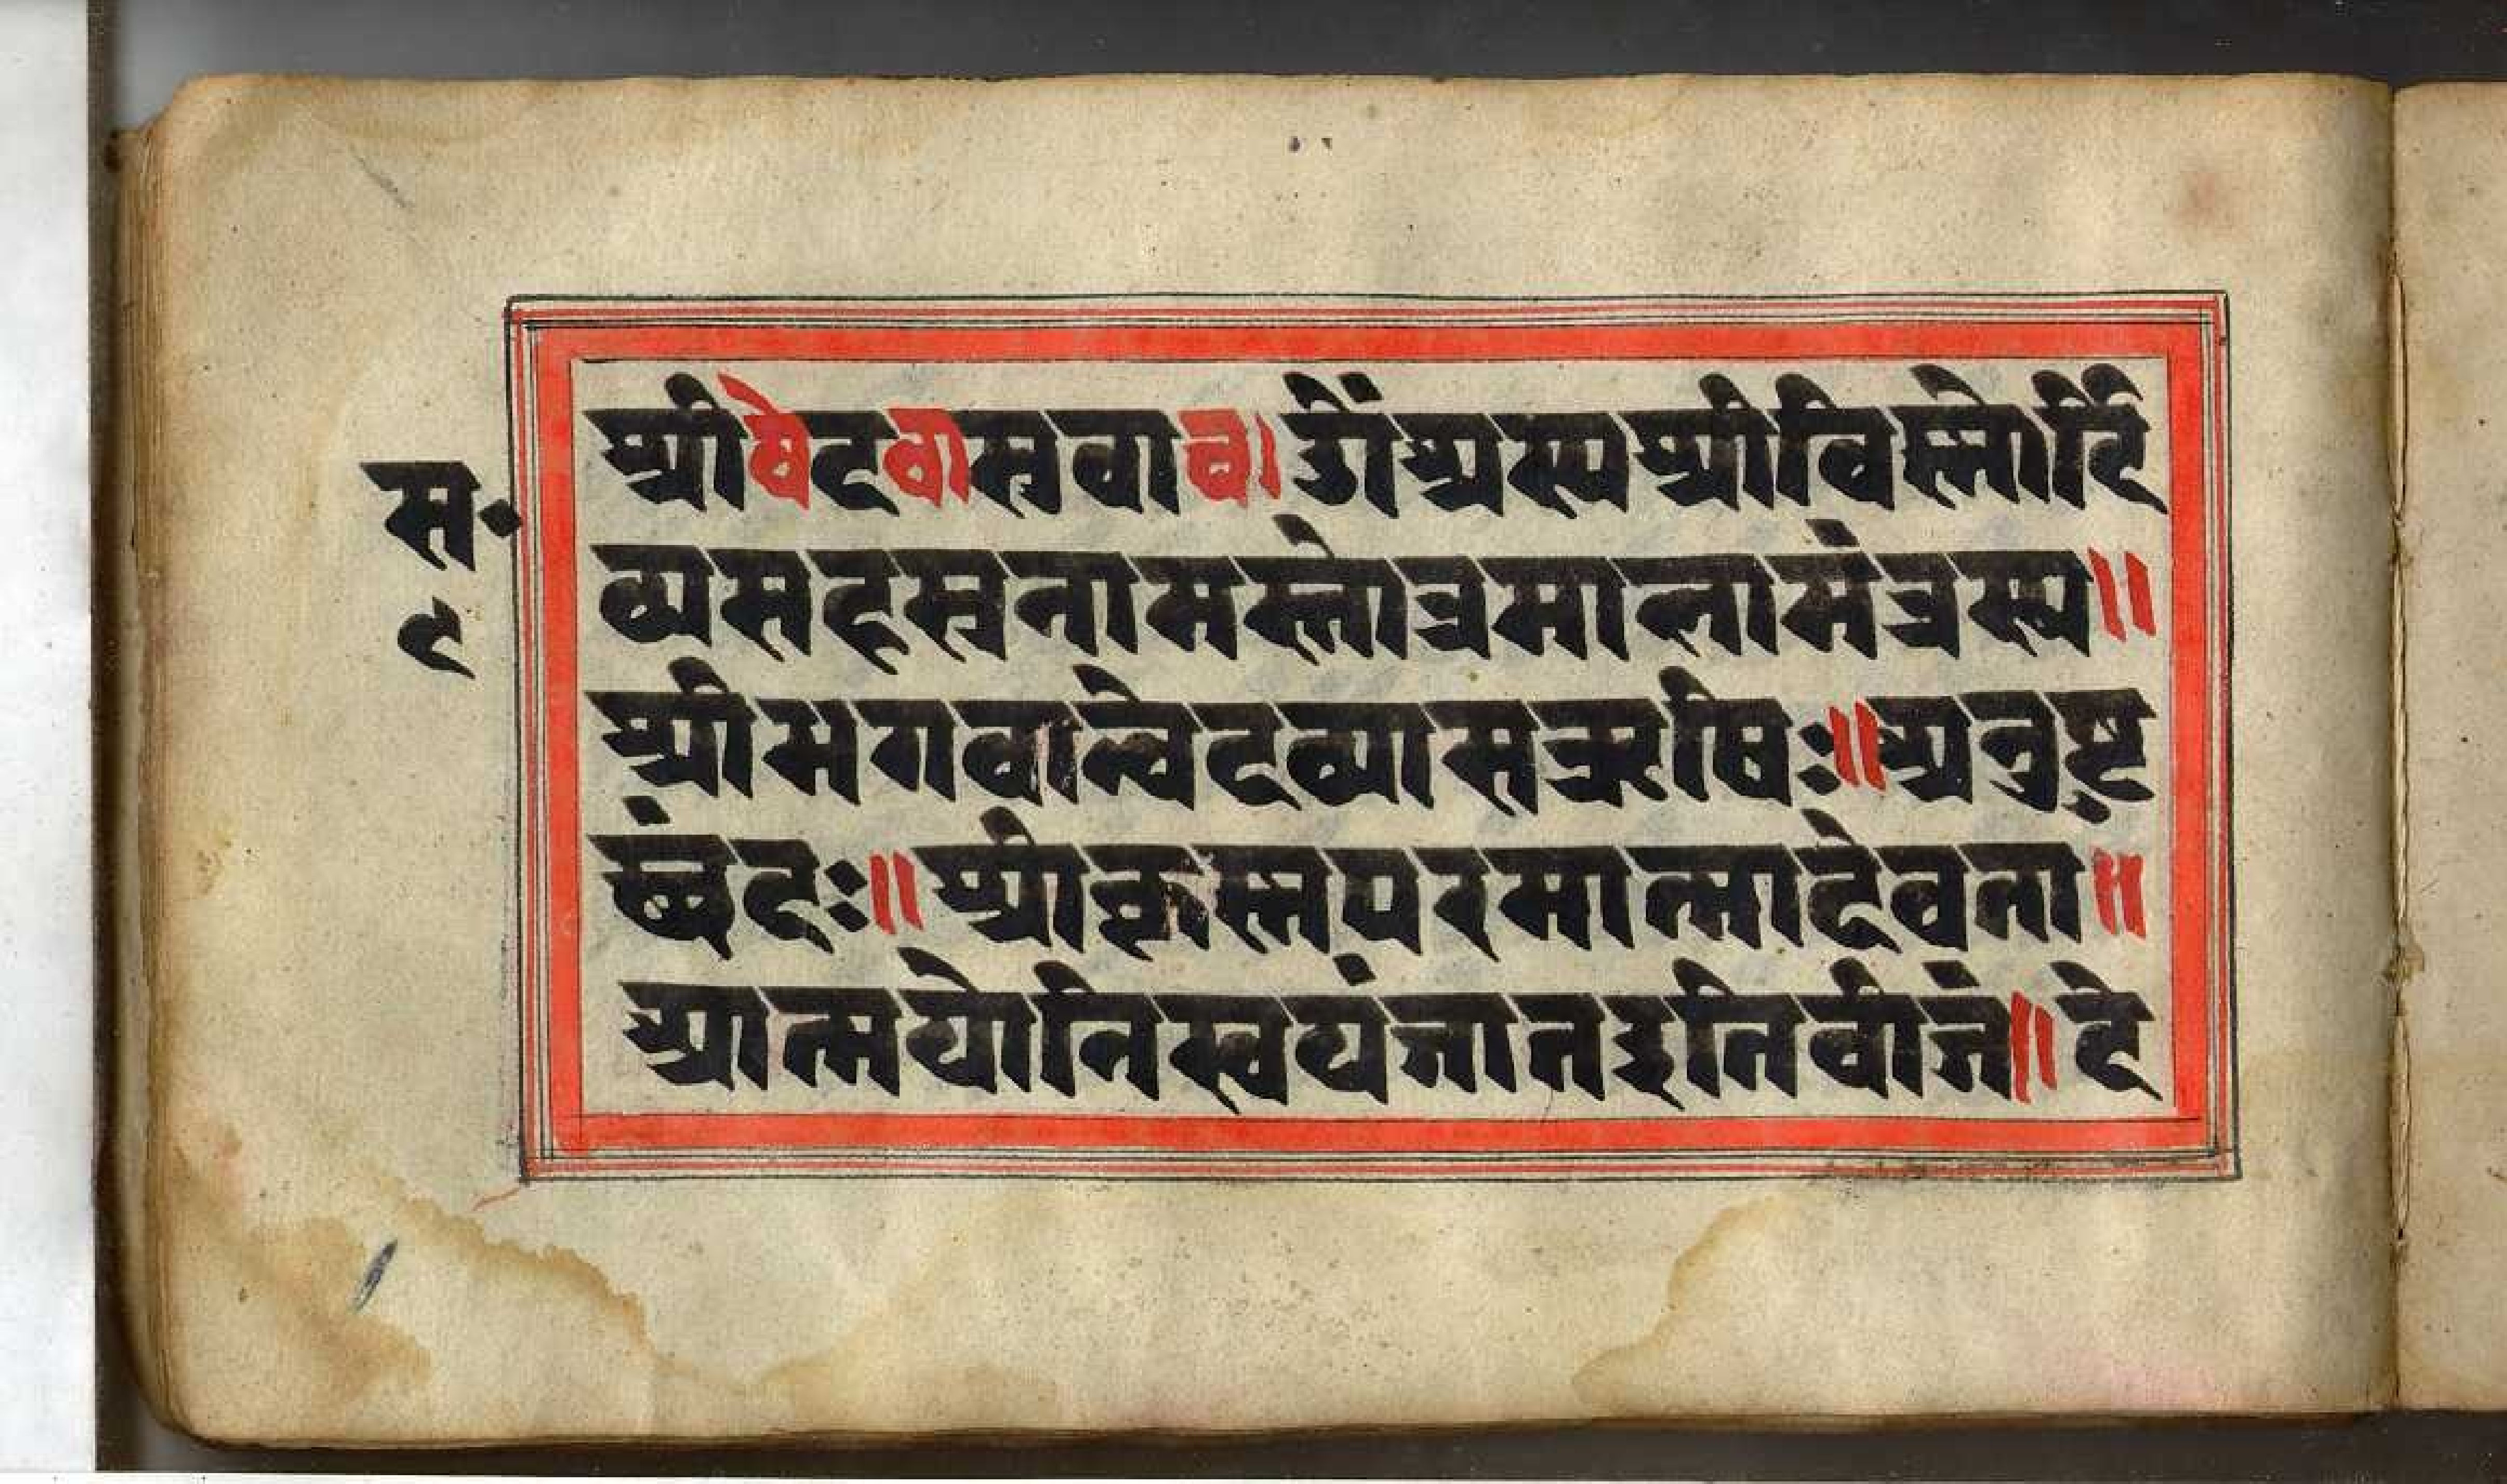 श्रीवेदवासउवाच। ओंअस्यश्रीविस्नोर्दि
स॰
व्यसहस्रनामस्तोत्रमालामंत्रस्य॥
९
श्रीभगवान्वेदव्यासऋषिः॥अनुष्टु
छंदः॥श्रीकृस्नपरमात्मादेवता॥
आत्मयोनिस्वयंजातइतिबीजं॥दे